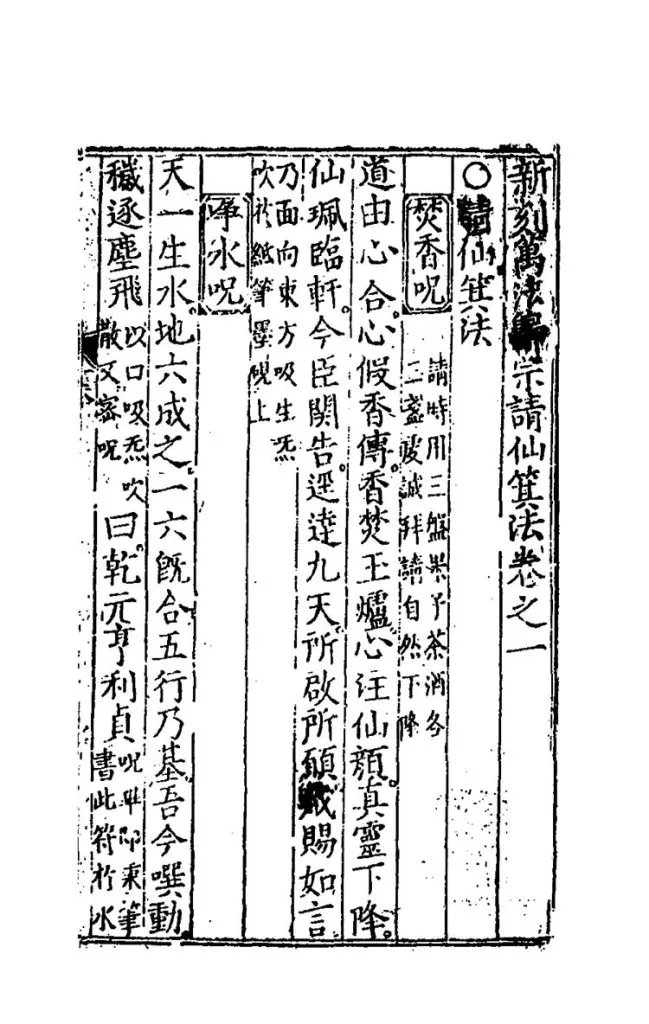 新刻萬法歸宗請仙箕法卷之一
○請仙箕法
焚香呪
請時用三盤菓子茶酒各
三盞䖍誠拜請自然下降
道由心合心假香傳香焚玉爐心注仙顏真靈下降
仙珮臨軒今臣関告逕達九天所啟所願咸賜如言
乃面向東方吸生炁
吹於紙筆墨硯上
淨水呪
天一生水地六成之一六既合五行乃基吾今噀動
穢逐塵飛
以口吸炁吹
散又宻呪
曰乾元亨利貞
呪畢即秉筆
書此符於水